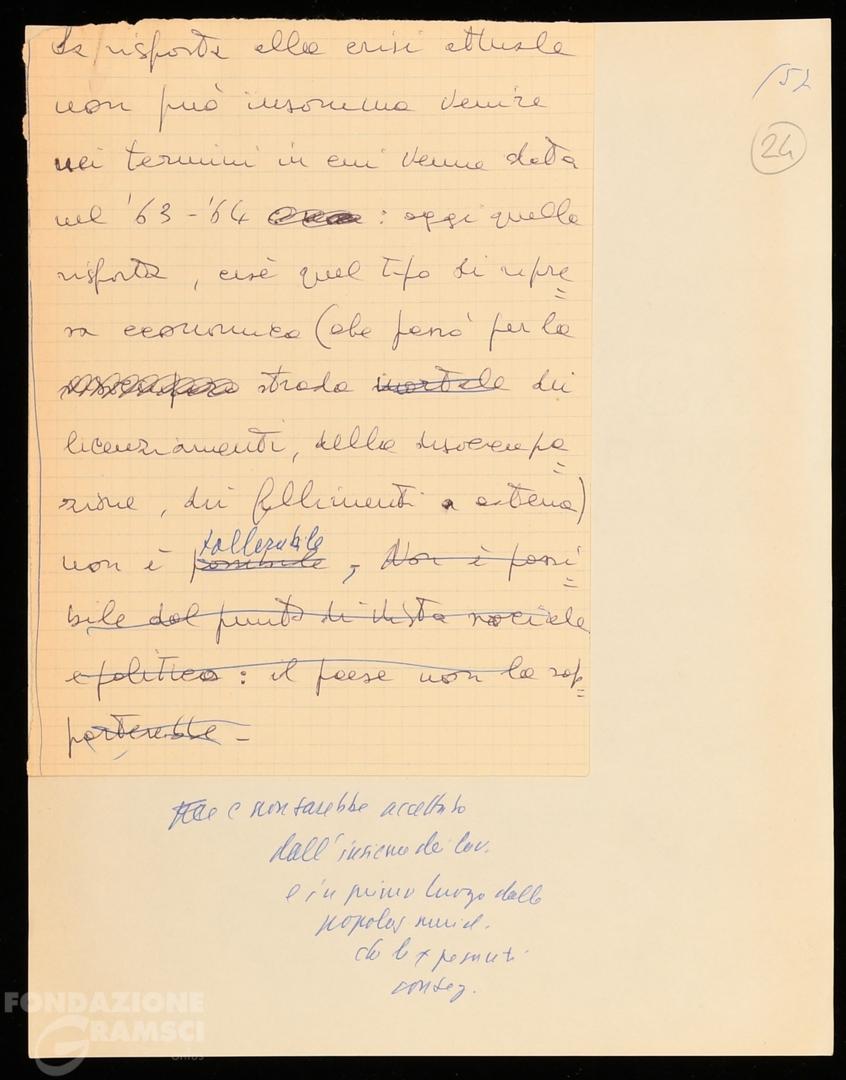 152
24
La risposta alla crisi attuale
non può insomma venire
nei termini in cui venne data
nel '63-'64 : oggi quella
risposta, cioè quel tipo di ripre=
sa economica (che passò per la
strada mortale dei
licenziamenti, della disoccupa=
zione, dei fallimenti a catena)
tollerabile
non è possibile, Non è possi=
bile dal punto di vista sociale
e politico: il paese non la sop=
porterebbe -
e non sarebbe accettato
dall'insieme dei lav.
e in primo luogo dalle
popolaz. merid.
conseg.
FONDAZIONE
GRAMSCI
ONLUS